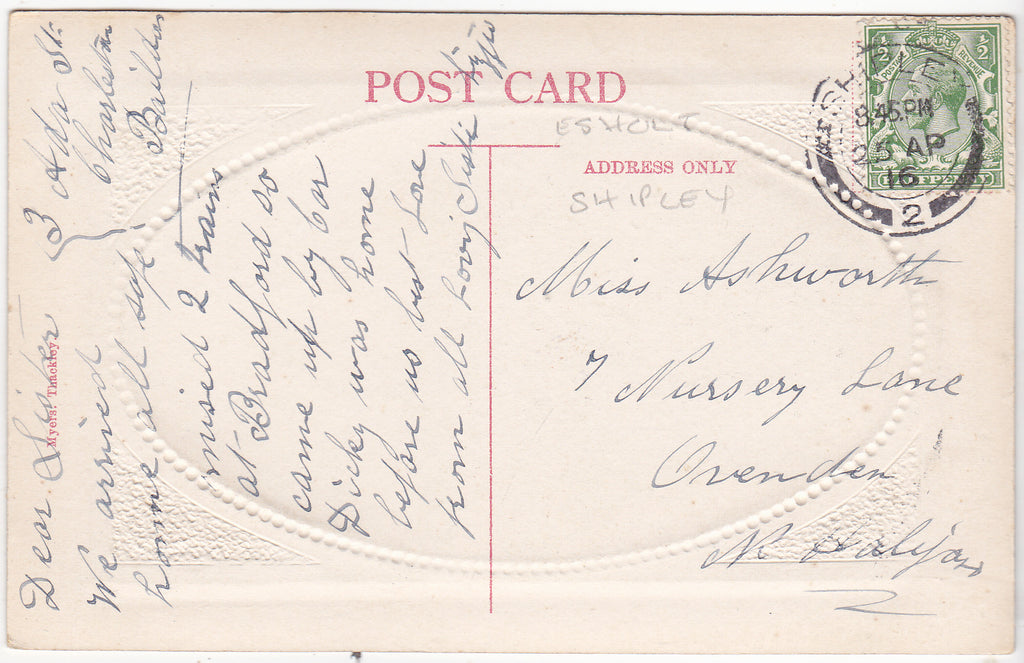 POST CARD
ESHOLT
ADDRESS ONLY
SHIPLEY
Myers. Thackley
3 Ada St.
Charlestown
Baildon
Dear Sister
We arrived
home all safe
missed 2 trains
at Bradford so
came up by Car
Dicky was home
before us best Love
from all Lovig Sister
Miss Ashworth
7 Nursery Lane
Ovenden
Nr Halifax
SHIPLEY
8.45.PM
25 AP
16
2
½
½
POSTAGE
REVENUE
HALFPENNY